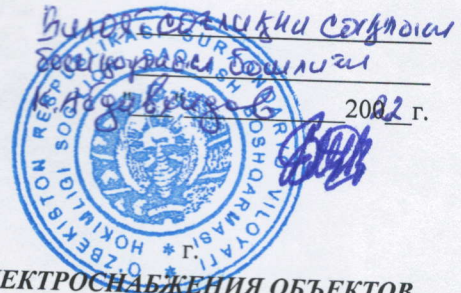 Вилоят соғлиқни сақлаш
бошқармаси бошлиғи
2002 г.
O'ZBEKISTON RESPUBLIKASI SURXANDARYO VILOYATI
HOKIMLIGI SOG'LIQNI SAQLASH BOSHQARMASI
г.
ЛЕКТРОСНАБЖЕНИЯ ОБЪЕКТОВ